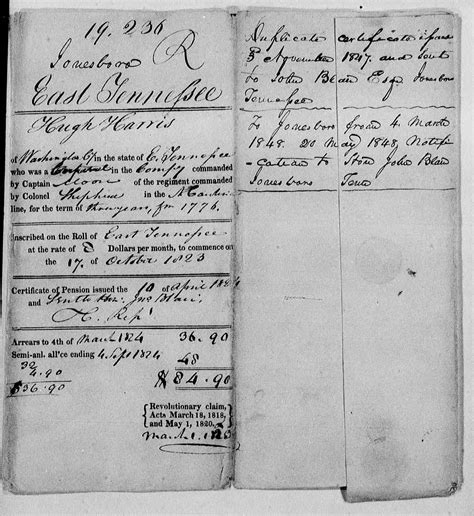 19.236
Jonesboro R
East Tennessee
Hugh Harris
of Washington Cy in the state of E. Tennessee
who was a Corporal in the Company commanded
by Captain Moon of the regiment commanded
by Colonel Stephens in the
line, for the term of three years, fm 1776.
Inscribed on the Roll of East Tennessee
at the rate of 8 Dollars per month, to commence on
the 17. of October 1823
Certificate of Pension issued the 10 of April 1824
and Sent to Hon: Jno Blair,
H. Rep.
Arrears to 4th of March 1824 36.90
Semi-anl. all'ce ending 4 Sept 1824 48
$84.90
32
4.90
$36.90
{Revolutionary claim,
Acts March 18, 1818,
and May 1, 1820.}
March 1. 1823
Duplicate certificate issued
5 November 1847. and sent
to John Blair Esq Jonesboro
Tennessee
To Jonesboro from 4 March
1848. 20 May 1848, Notifi
cation to Hon John Blair
Jonesboro Tenn